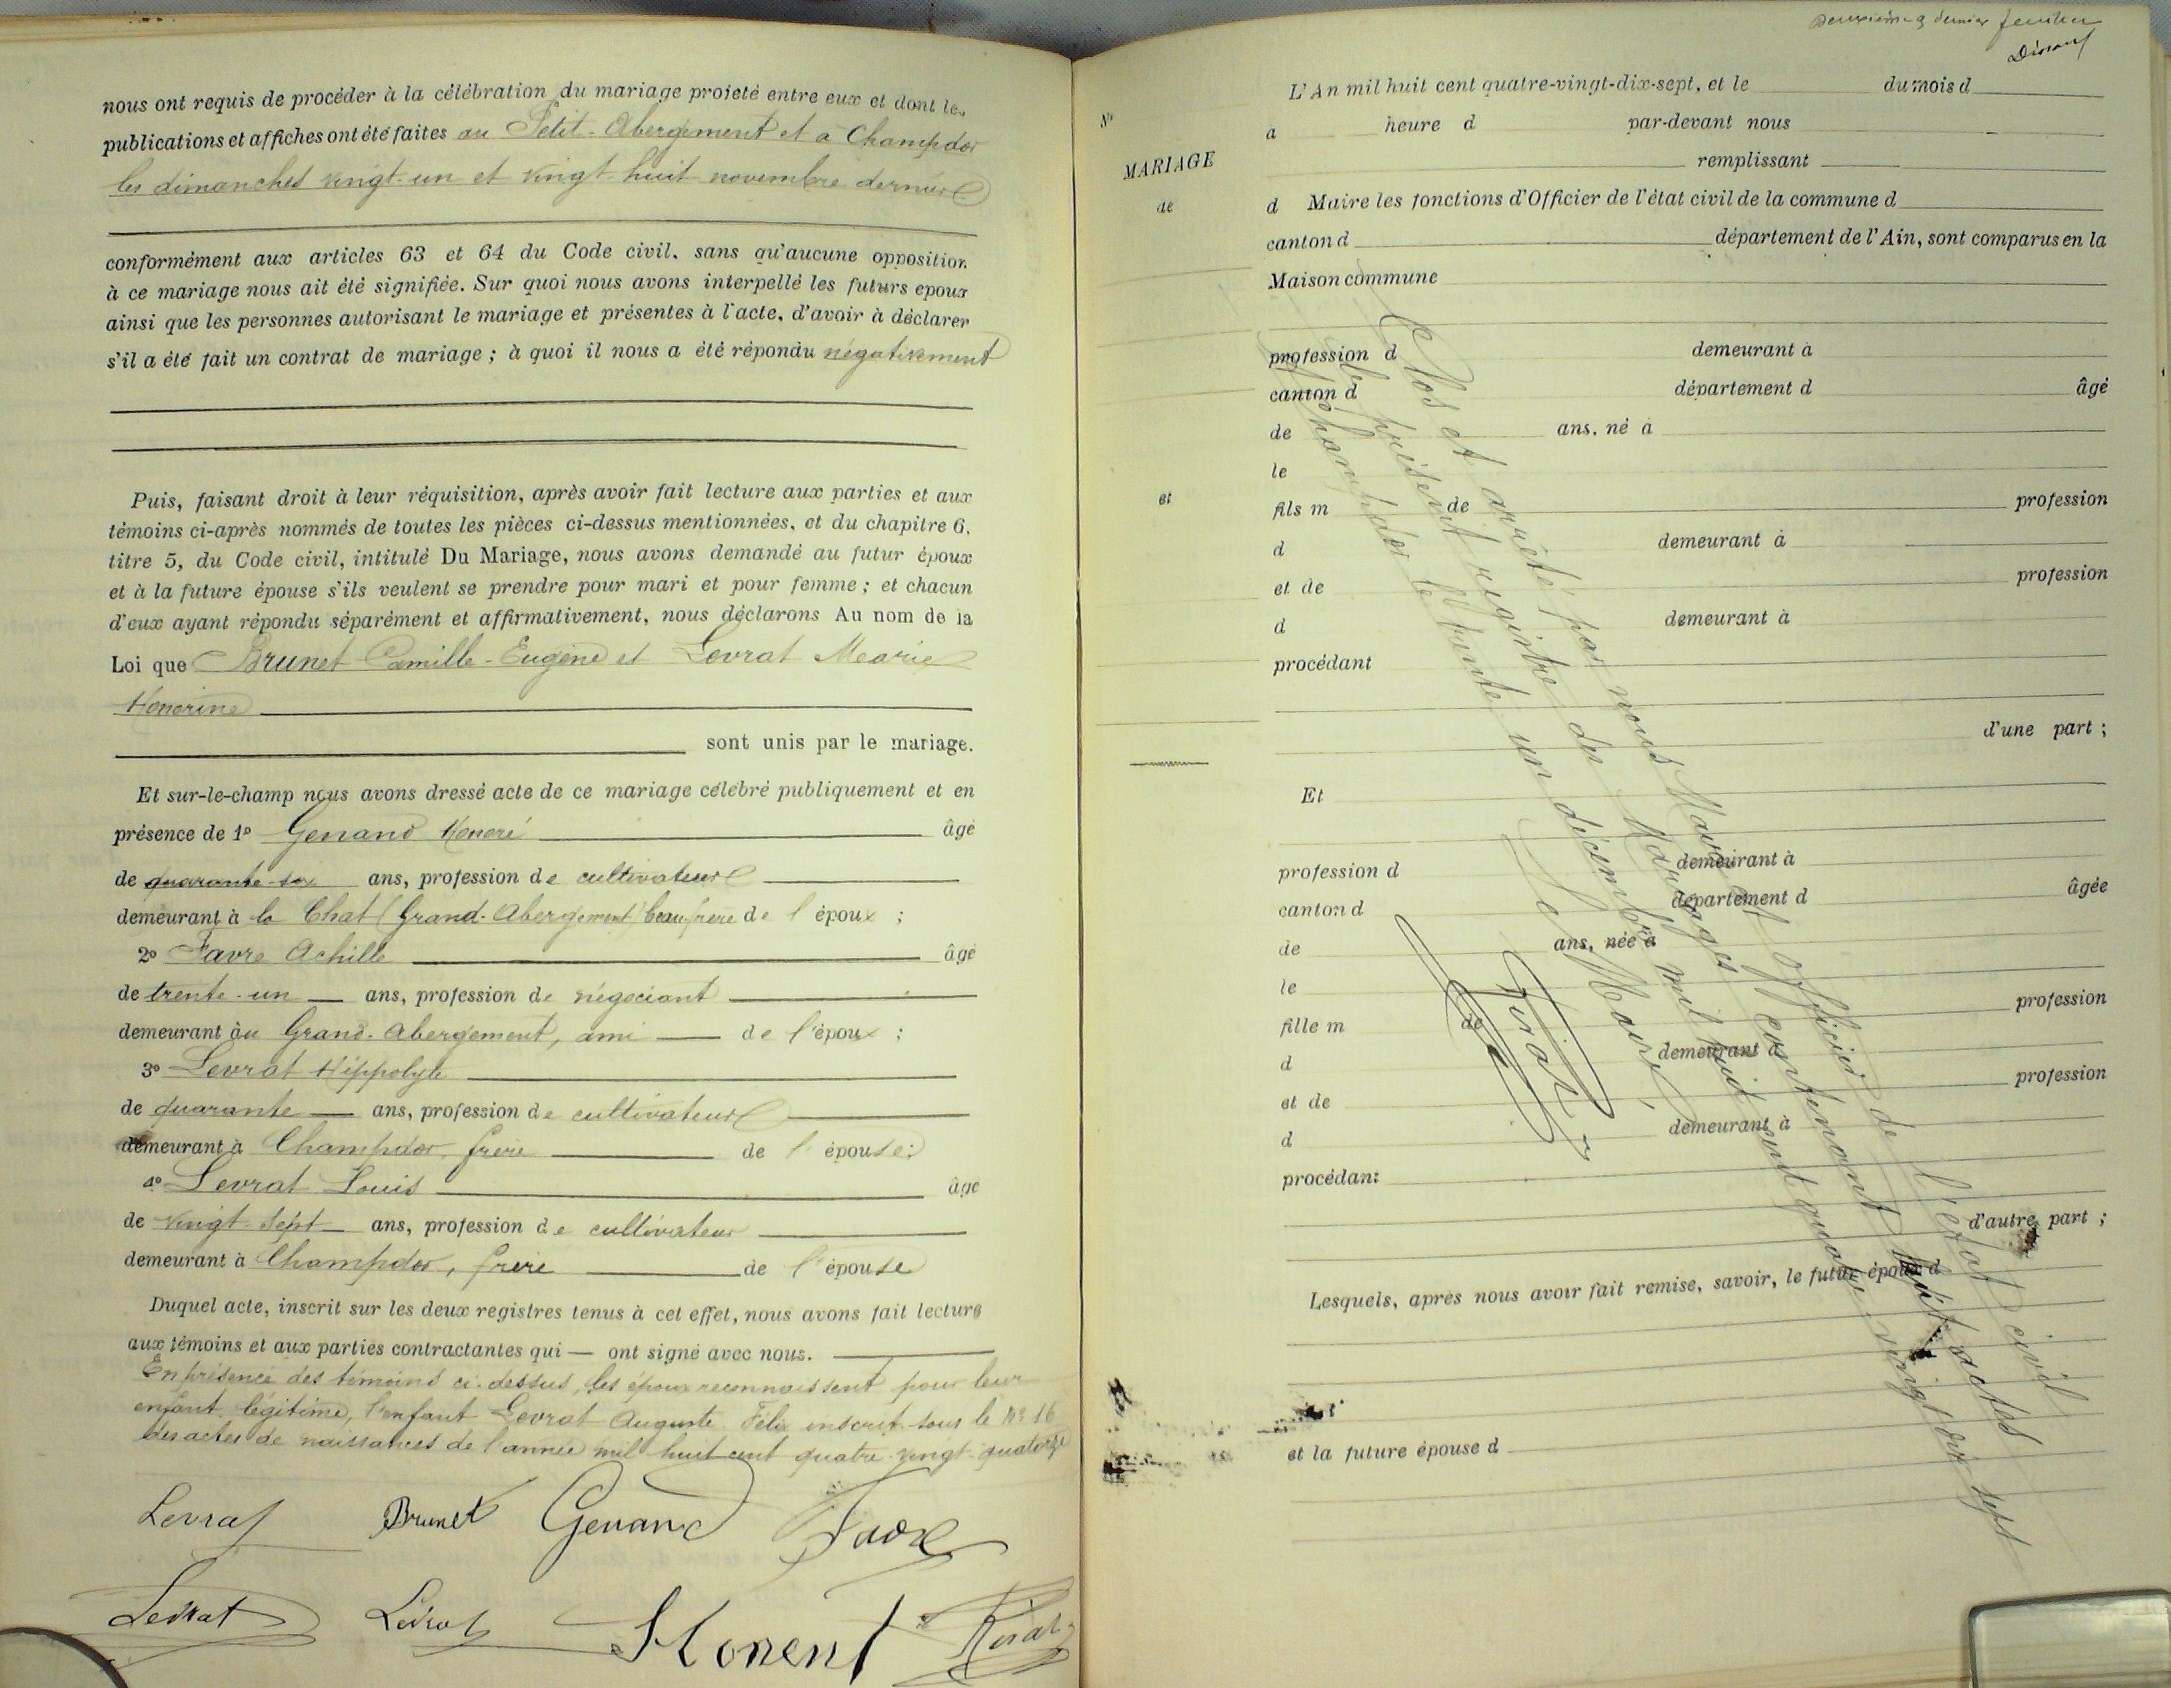 nous ont requis de procéder à la célébration du mariage projeté entre eux et dont les
publications et affiches ont été faites au Petit-Abergement et à Champdor
les dimanches vingt-un et vingt-huit novembre dernier
conformément aux articles 63 et 64 du Code civil, sans qu'aucune opposition
à ce mariage nous ait été signifiée. Sur quoi nous avons interpellé les futurs époux
ainsi que les personnes autorisant le mariage et présentes à l'acte, d'avoir à déclarer
s'il a été fait un contrat de mariage ; à quoi il nous a été répondu négativement
Puis, faisant droit à leur réquisition, après avoir fait lecture aux parties et aux
témoins ci-après nommés de toutes les pièces ci-dessus mentionnées, et du chapitre 6,
titre 5, du Code civil, intitulé Du Mariage, nous avons demandé au futur époux
et à la future épouse s'ils veulent se prendre pour mari et pour femme ; et chacun
d'eux ayant répondu séparément et affirmativement, nous déclarons Au nom de la
Loi que Brunet Camille-Eugène et Levrat Marie
Honorine
sont unis par le mariage.
Et sur-le-champ nous avons dressé acte de ce mariage célébré publiquement et en
présence de 1º Genand Honoré âgé
de quarante-six ans, profession de cultivateur
demeurant à la Chat (Grand-Abergement) beau-frère de l'époux ;
2º Favre Achille âgé
de trente-un ans, profession de négociant
demeurant au Grand-Abergement, ami de l'époux ;
3º Levrat Hippolyte
de quarante ans, profession de cultivateur
demeurant à Champdor, frère de l'épouse ;
4º Levrat Louis âgé
de vingt-sept ans, profession de cultivateur
demeurant à Champdor, frère de l'épouse
Duquel acte, inscrit sur les deux registres tenus à cet effet, nous avons fait lecture
aux témoins et aux parties contractantes qui ont signé avec nous.
En présence des témoins ci-dessus, les époux reconnaissent pour leur
enfant légitime, l'enfant Levrat Auguste Félix inscrit sous le Nº 16
des actes de naissances de l'année mil huit cent quatre-vingt-quatorze
Levrat Brunet Genand Favre
Levrat Levrat
Deuxième & dernier feuillet
L'An mil huit cent quatre-vingt-dix-sept, et le du mois d
Nº
à heure d par-devant nous
MARIAGE
remplissant
de
d Maire les fonctions d'Officier de l'état civil de la commune d
canton d département de l'Ain, sont comparus en la
Maison commune
profession d demeurant à
canton d département d âgé
de ans, né à
le
et
fils m de profession
d demeurant à
et de profession
d demeurant à
procédant
d'une part ;
Et
profession d demeurant à
canton d département d âgée
de ans, née à
le
fille m de profession
d demeurant à
et de profession
d demeurant à
procédant
d'autre part ;
Lesquels, après nous avoir fait remise, savoir, le futur époux d
et la future épouse d
Clos et arrêté par nous Maire et officier de l'état civil
le présent registre des Mariages contenant huit actes
à Champdor le trente un décembre mil huit cent quatre vingt dix sept
Le Maire,